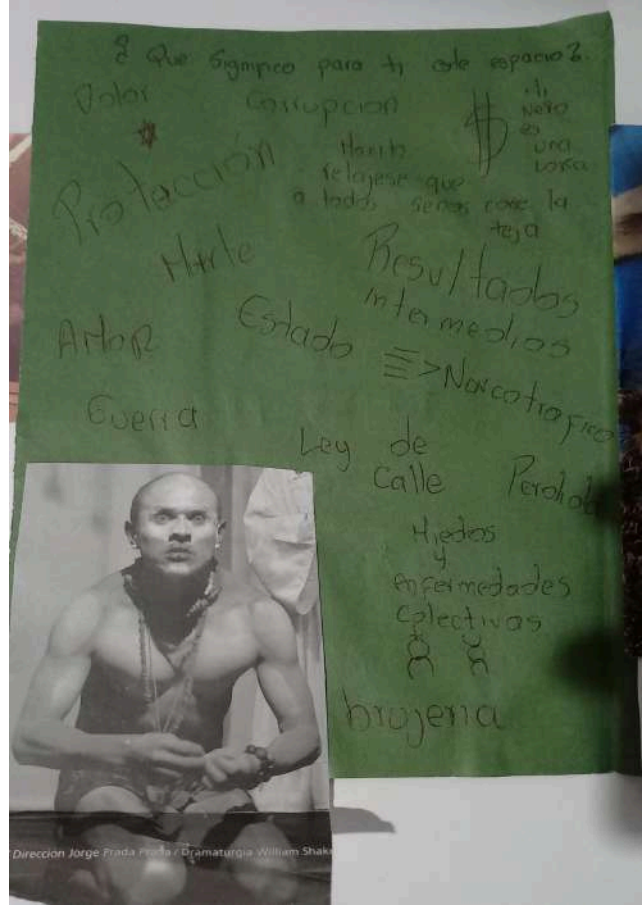 ¿ Que significo para ti este espacio?
Dolor
Corrupcion
$
Protección
relajese que
a todos senos core la
teja
Resultados
intermedios
Amor
Estado => Narcotrafico
Guerra
Ley de
Calle
Miedos
y
enfermedades
colectivas
brojeria
Dirección Jorge Prada Prada / Dramaturgia William Shak